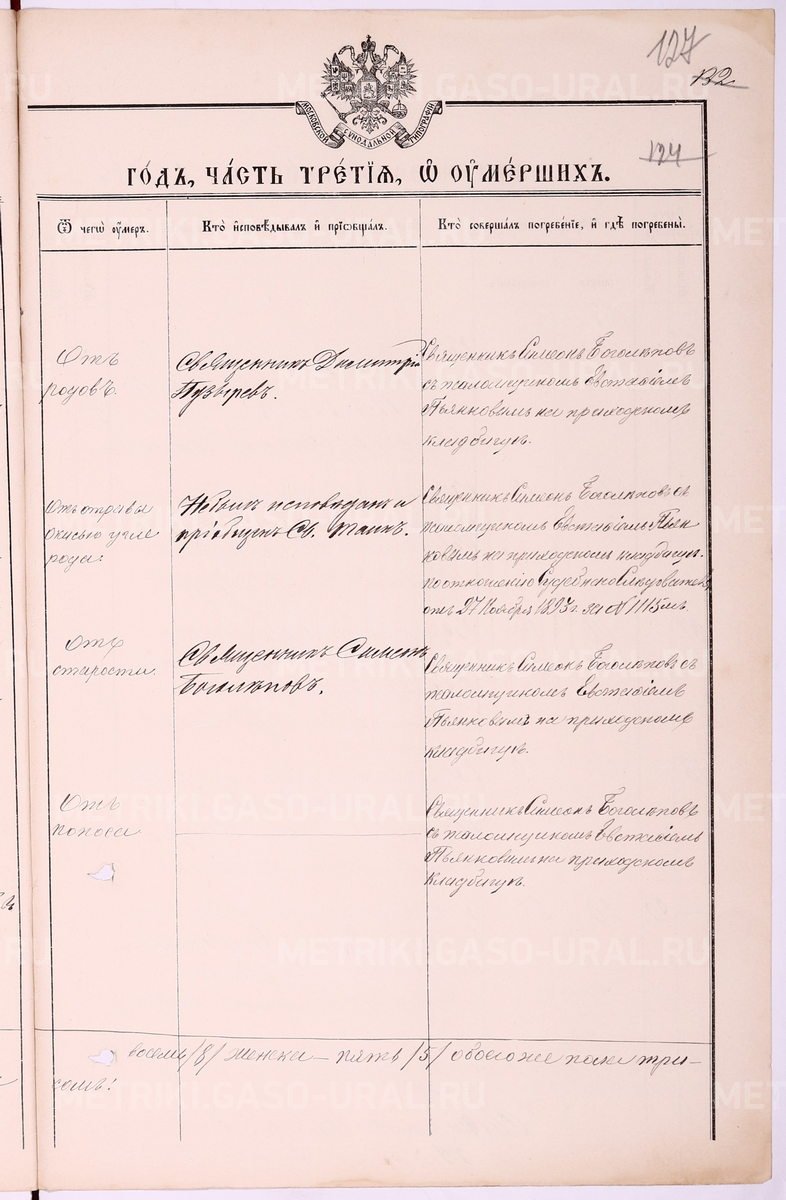 127
132
124
МОСКОВСКОЙ СѴНОДАЛЬНОЙ ТИПОГРАФІИ
ГО́ДЪ, ЧА́СТЬ ТРЕ́ТІѦ, Ѡ҆ ОУ҆МЕ́РШИХЪ.
Ѿ чегѡ̀ оу҆́меръ.
Кто̀ и҆сповѣ́дывалъ и҆ прїѡбща́лъ.
Кто̀ соверша́лъ погребе́нїе, и҆ гдѣ̀ погребены̀.
Отъ
родовъ.
Священникъ Димитрій
Пузыревъ.
Священникъ Симеонъ Боголѣповъ
съ псаломщикомъ Евстафіемъ
Пьянковымъ на приходскомъ
кладбищѣ.
Отъ отравы
окисью угле
рода.
Небылъ исповѣданъ и
пріобщенъ Св. Таинъ.
Священникъ Симеонъ Боголѣповъ съ
псаломщикомъ Евстафіемъ Пьян
ковымъ на приходскомъ кладбищѣ.
по отношенію Судебнаго Слѣдователя
отъ 27 Ноября 1897 г. за № 1115 мъ.
Отъ
старости
Священникъ Симеонъ
Боголѣповъ.
Священникъ Симеонъ Боголѣповъ съ
псаломщикомъ Евстафіемъ
Пьянковымъ на приходскомъ
кладбищѣ.
Отъ
поноса
Священникъ Симеонъ Боголѣповъ
съ псаломщикомъ Евстафіемъ
Пьянковымъ на приходскомъ
кладбищѣ.
восемь /8/ женска — пять /5/ обоего же пола три-
METRIKI.GASO-URAL.RU